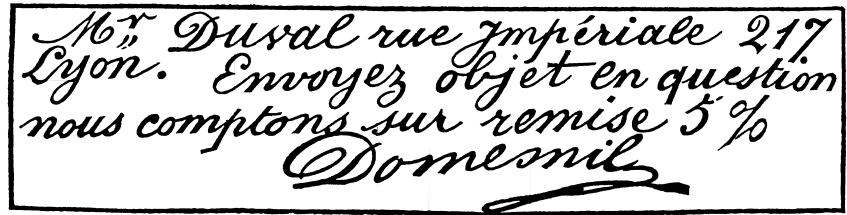 Mr Duval rue Impériale 217
Lyon. Envoyez objet en question
nous comptons sur remise 5 %
Domesnil